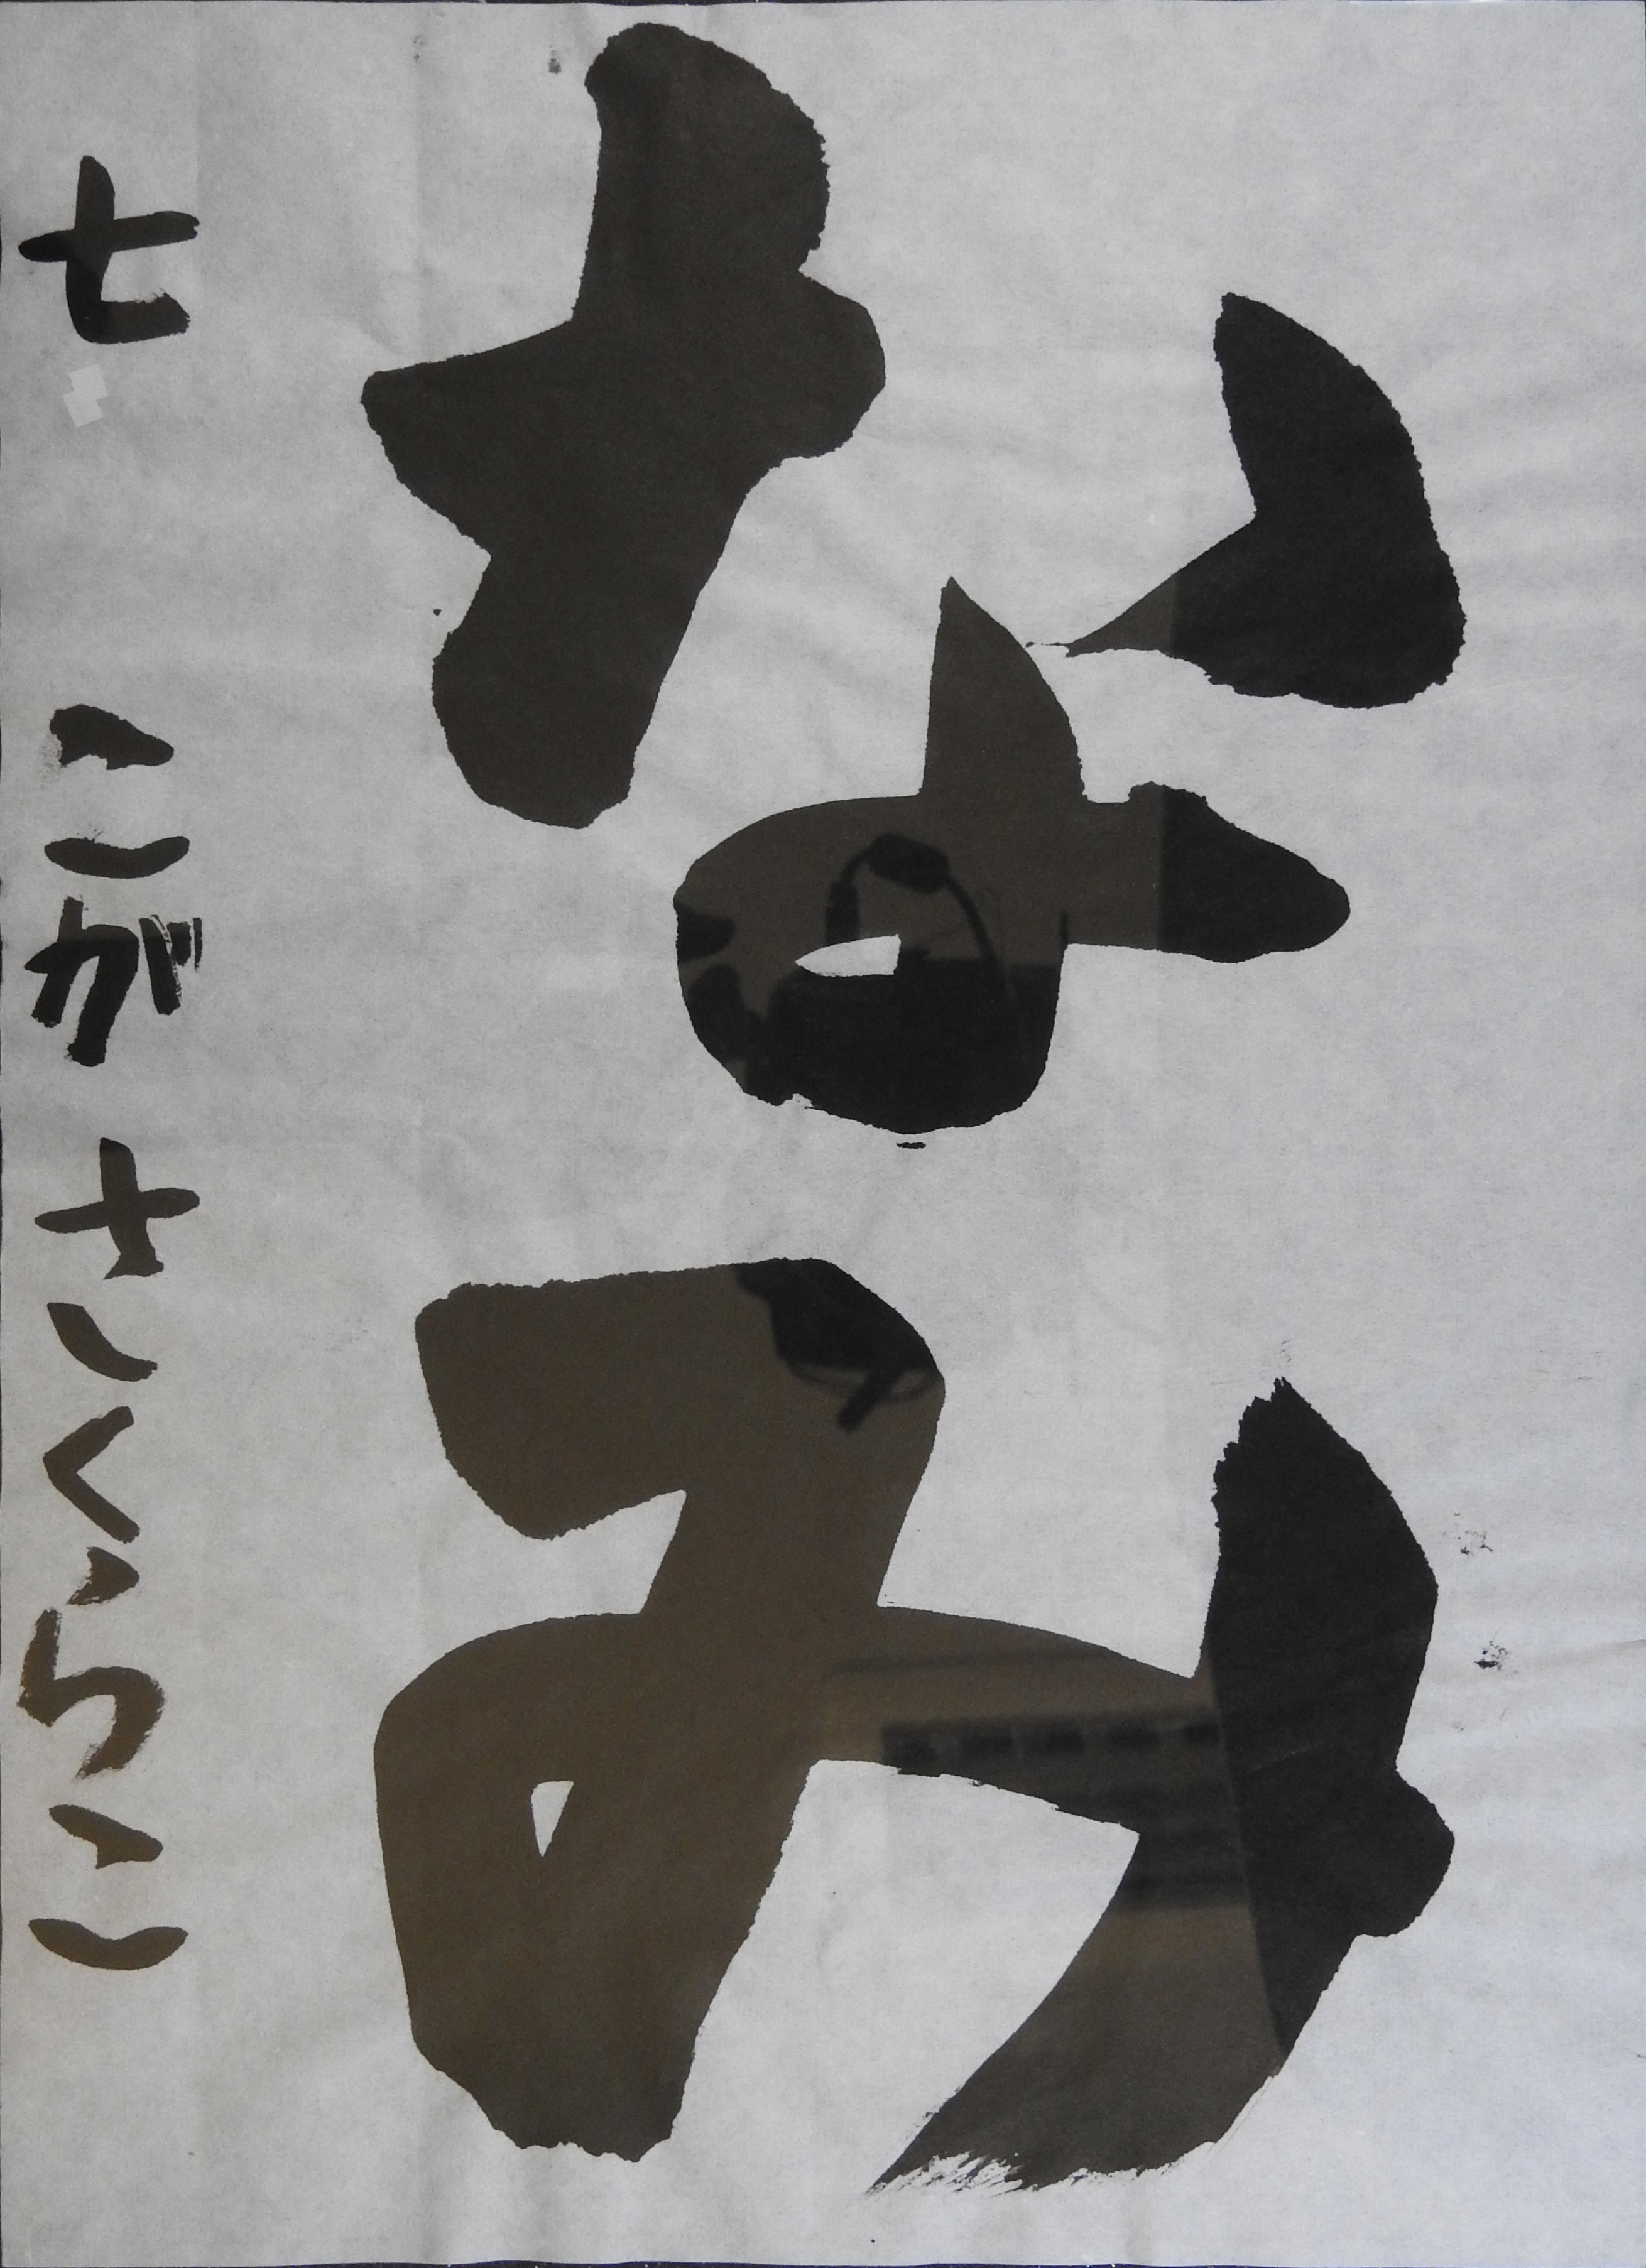 なみ
七 こが さくらこ